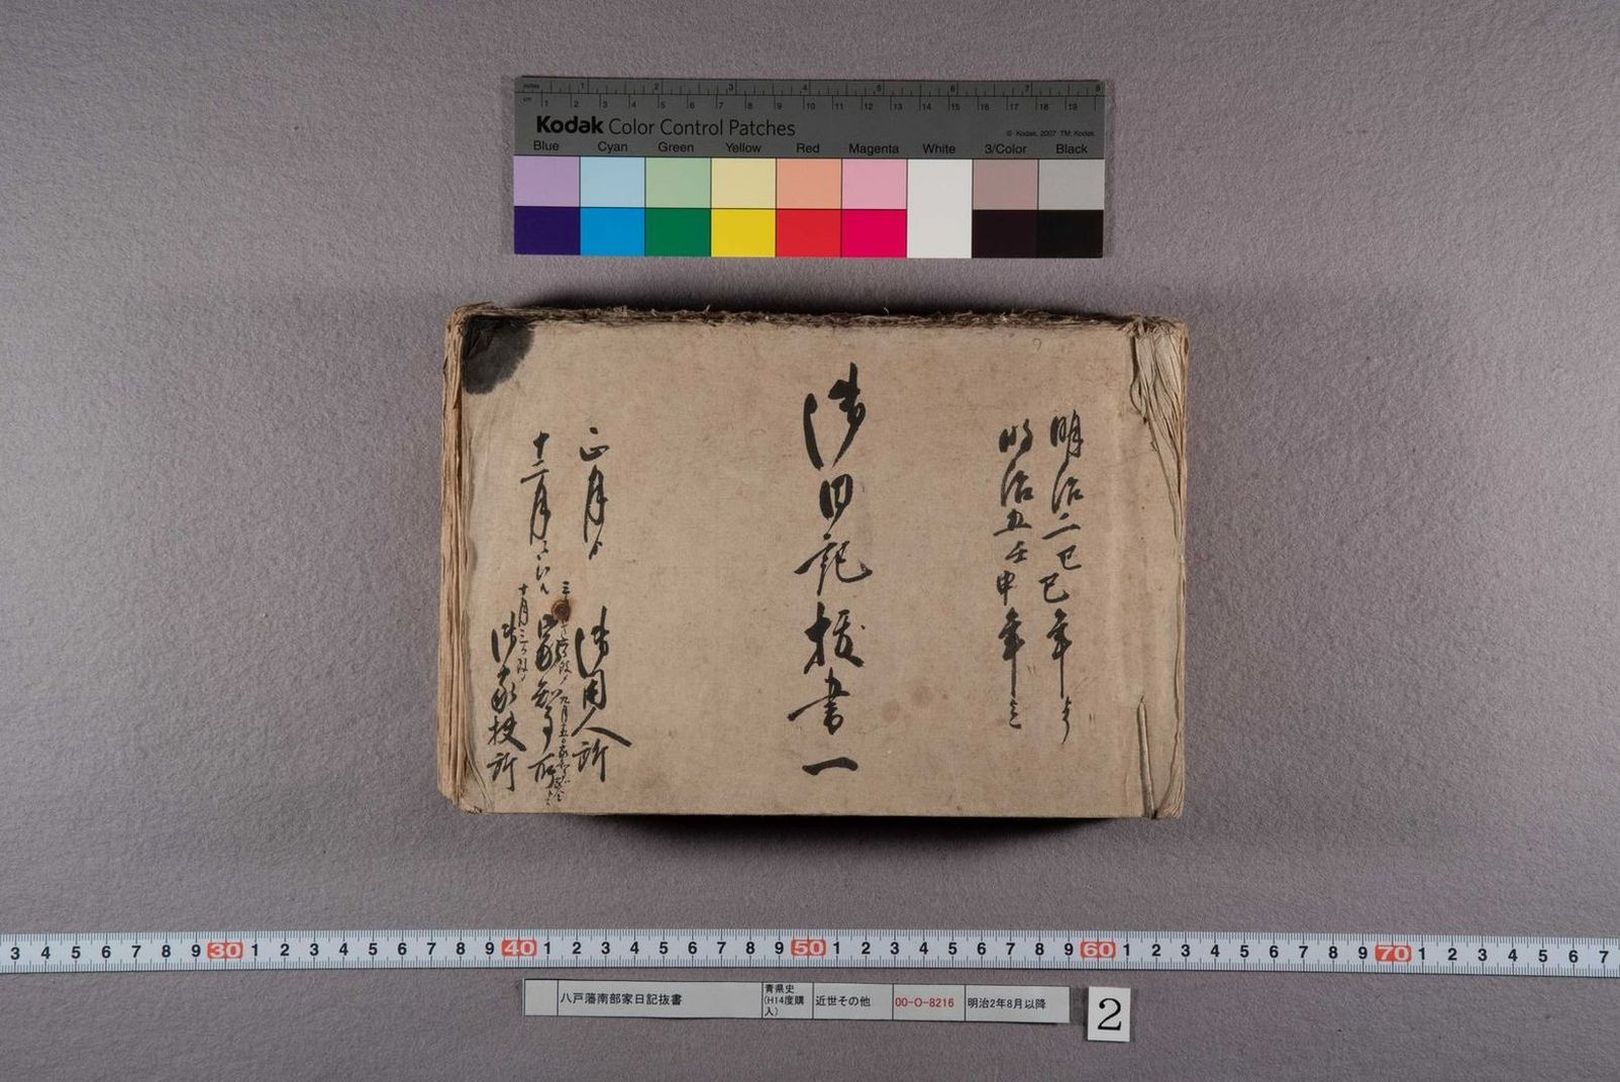 Kodak Color Control Patches
© Kodak, 2007 TM: Kodak
Blue Cyan Green Yellow Red Magenta White 3/Color Black
明治二己巳年ゟ
明治五壬申年迄
御日記抜書一
正月ゟ
十二月
御用人所
家知事所
御家扶所
3 4 5 6 7 8 9 30 1 2 3 4 5 6 7 8 9 40 1 2 3 4 5 6 7 8 9 50 1 2 3 4 5 6 7 8 9 60 1 2 3 4 5 6 7 8 9 70 1 2 3 4 5 6 7
八戸藩南部家日記抜書
青県史
(H14度購
入)
近世その他
00-O-8216
明治2年8月以降
2